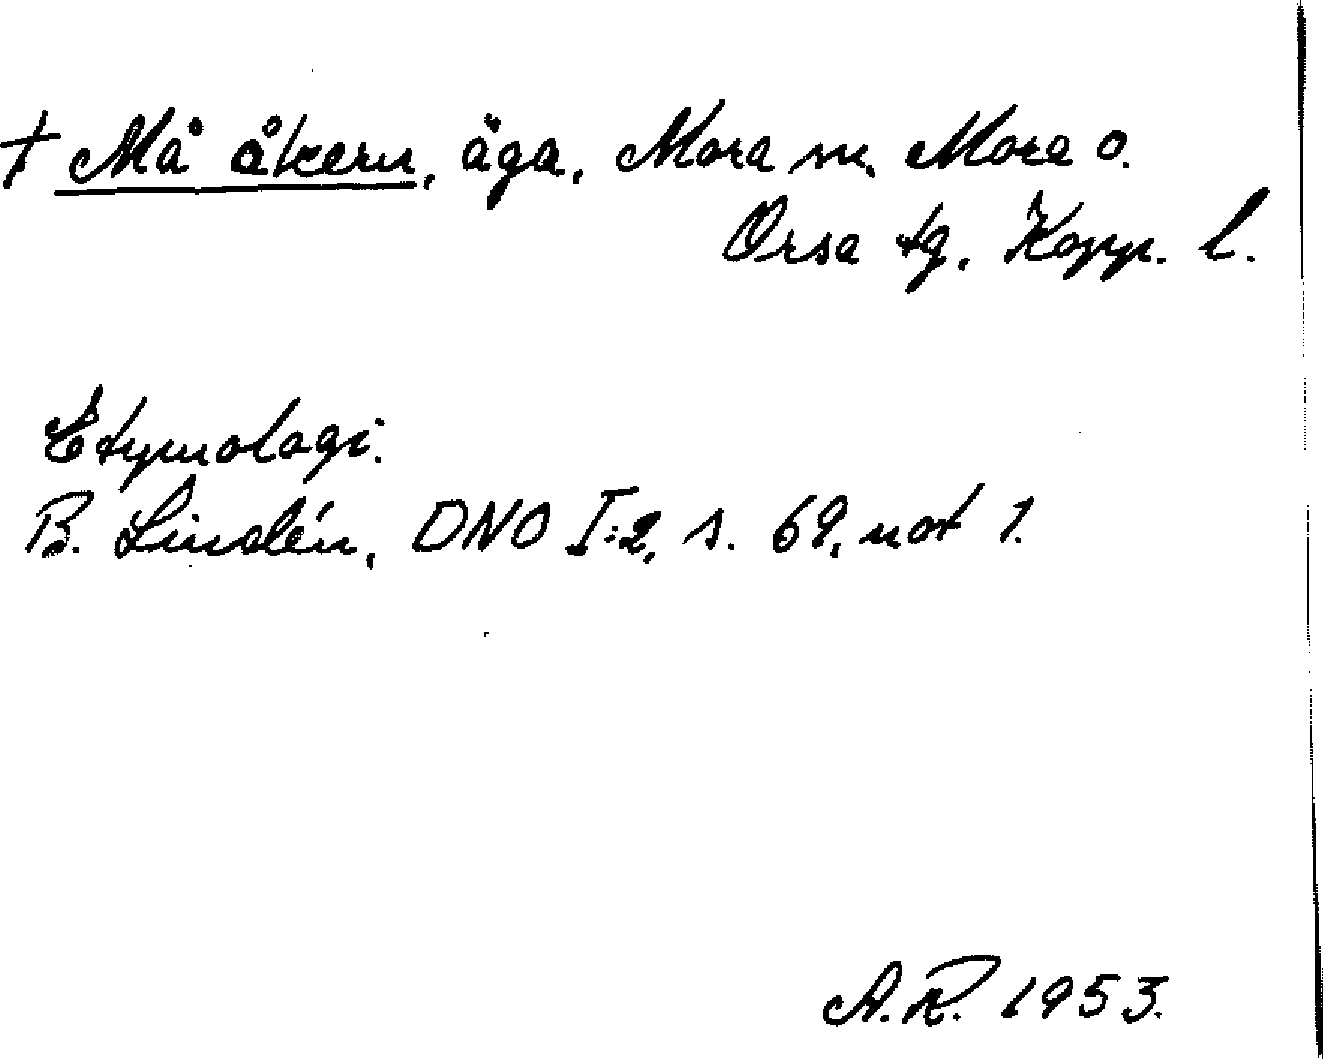 † Må åkern, äga, Mora sn, Mora o.
Orsa tg, Kopp. l.
Etymologi.
B. Lindén, DNO I:2, s. 69, not 1.
A.R. 1953.